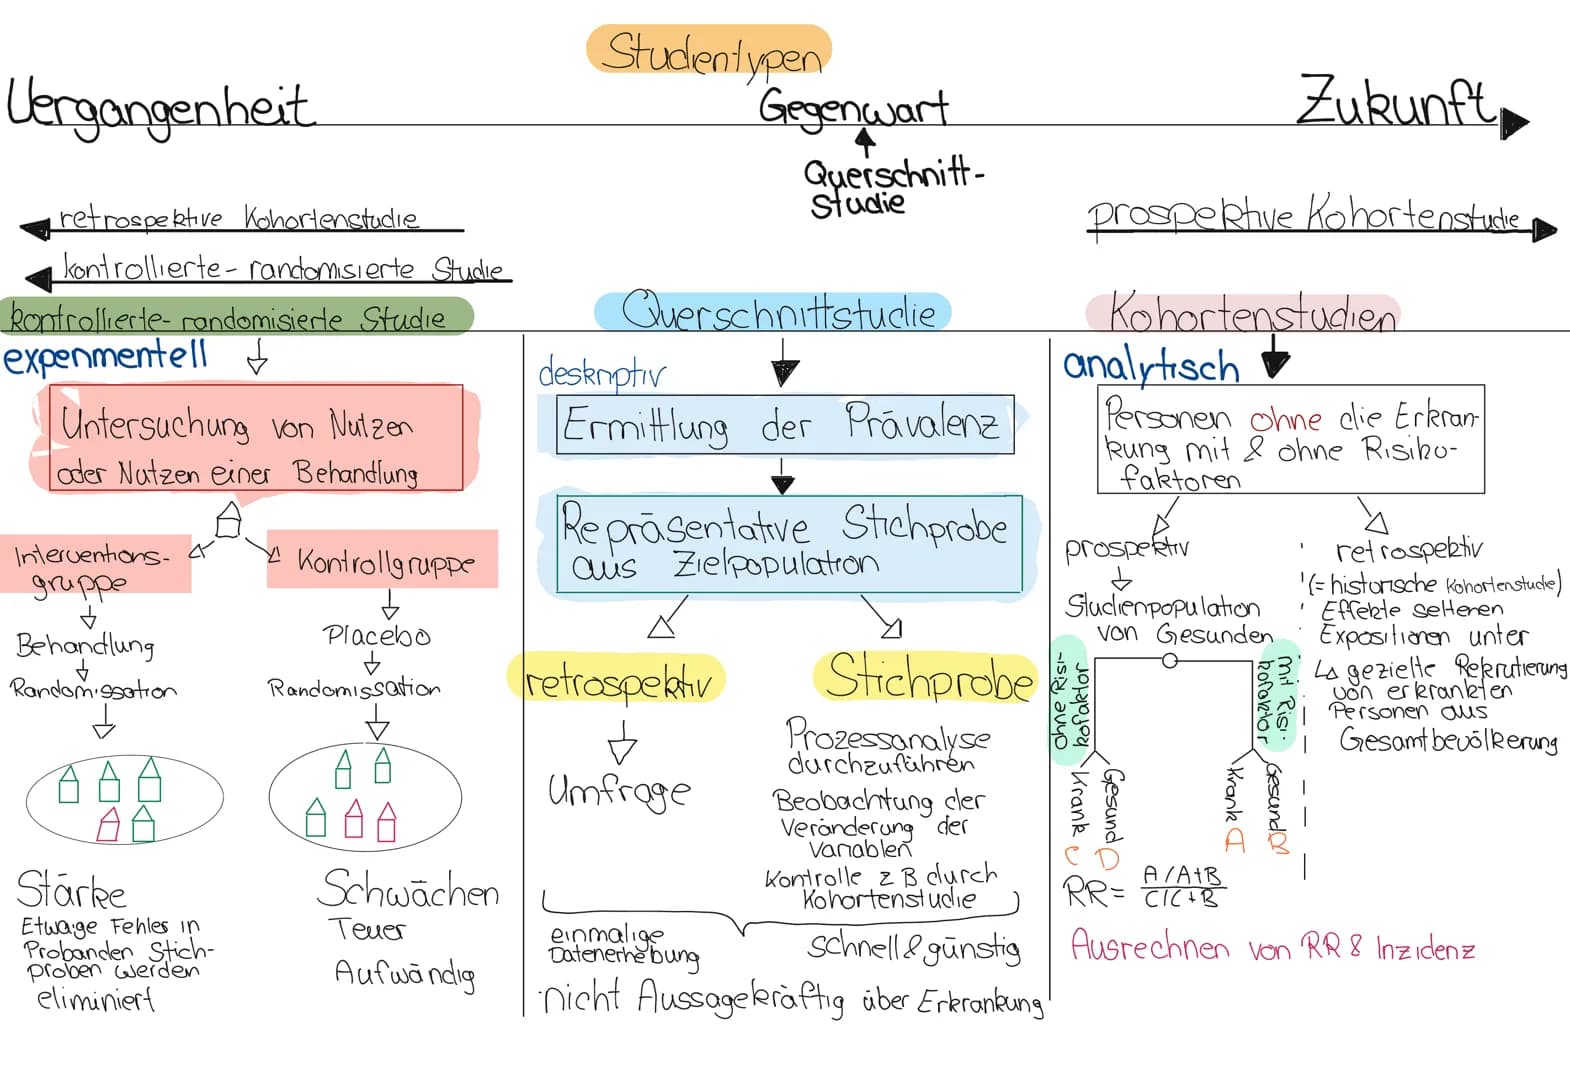 Studientypen
Vergangenheit
Gegenwart
Zukunft
Querschnitt-
studie
retrospektive Kohortenstudie
prospektive Kohortenstudie
kontrollierte- randomisierte Studie
kontrollierte- randomisierte Studie
experimentell
Untersuchung von Nutzen
oder Nutzen einer Behandlung
Interventions-
gruppe
Behandlung
Randomissation
Kontrollgruppe
Placebo
Randomissation
Stärke
Etwaige Fehler in
Probanden Stich-
proben werden
eliminiert
Schwächen
Teuer
Aufwändig
Querschnittstudie
deskriptiv
Ermittlung der Prävalenz
Repräsentative Stichprobe
aus Zielpopulation
retrospektiv
Umfrage
Stichprobe
Prozessanalyse
durchzuführen
Beobachtung der
Veränderung der
Variablen
Kontrolle z B durch
Kohortenstudie
einmalige
Datenerhebung
schnell & günstig
nicht Aussagekräftig über Erkrankung
Kohortenstudien
analytisch
Personen ohne die Erkran-
kung mit & ohne Risiko-
faktoren
prospektiv
Studienpopulation
von Gesunden
ohne Risi-
kofaktor
mit Risi-
kofaktor
Krank
Gesund
Krank
Gesund
C
D
A
B
RR= A/A+B
C/C+B
retrospektiv
(= historische Kohortenstudie)
Effekte selteren
Expositionen unter
↳ gezielte Rekrutierung
von erkrankten
Personen aus
Gesamtbevölkerung
Ausrechnen von RR & Inzidenz